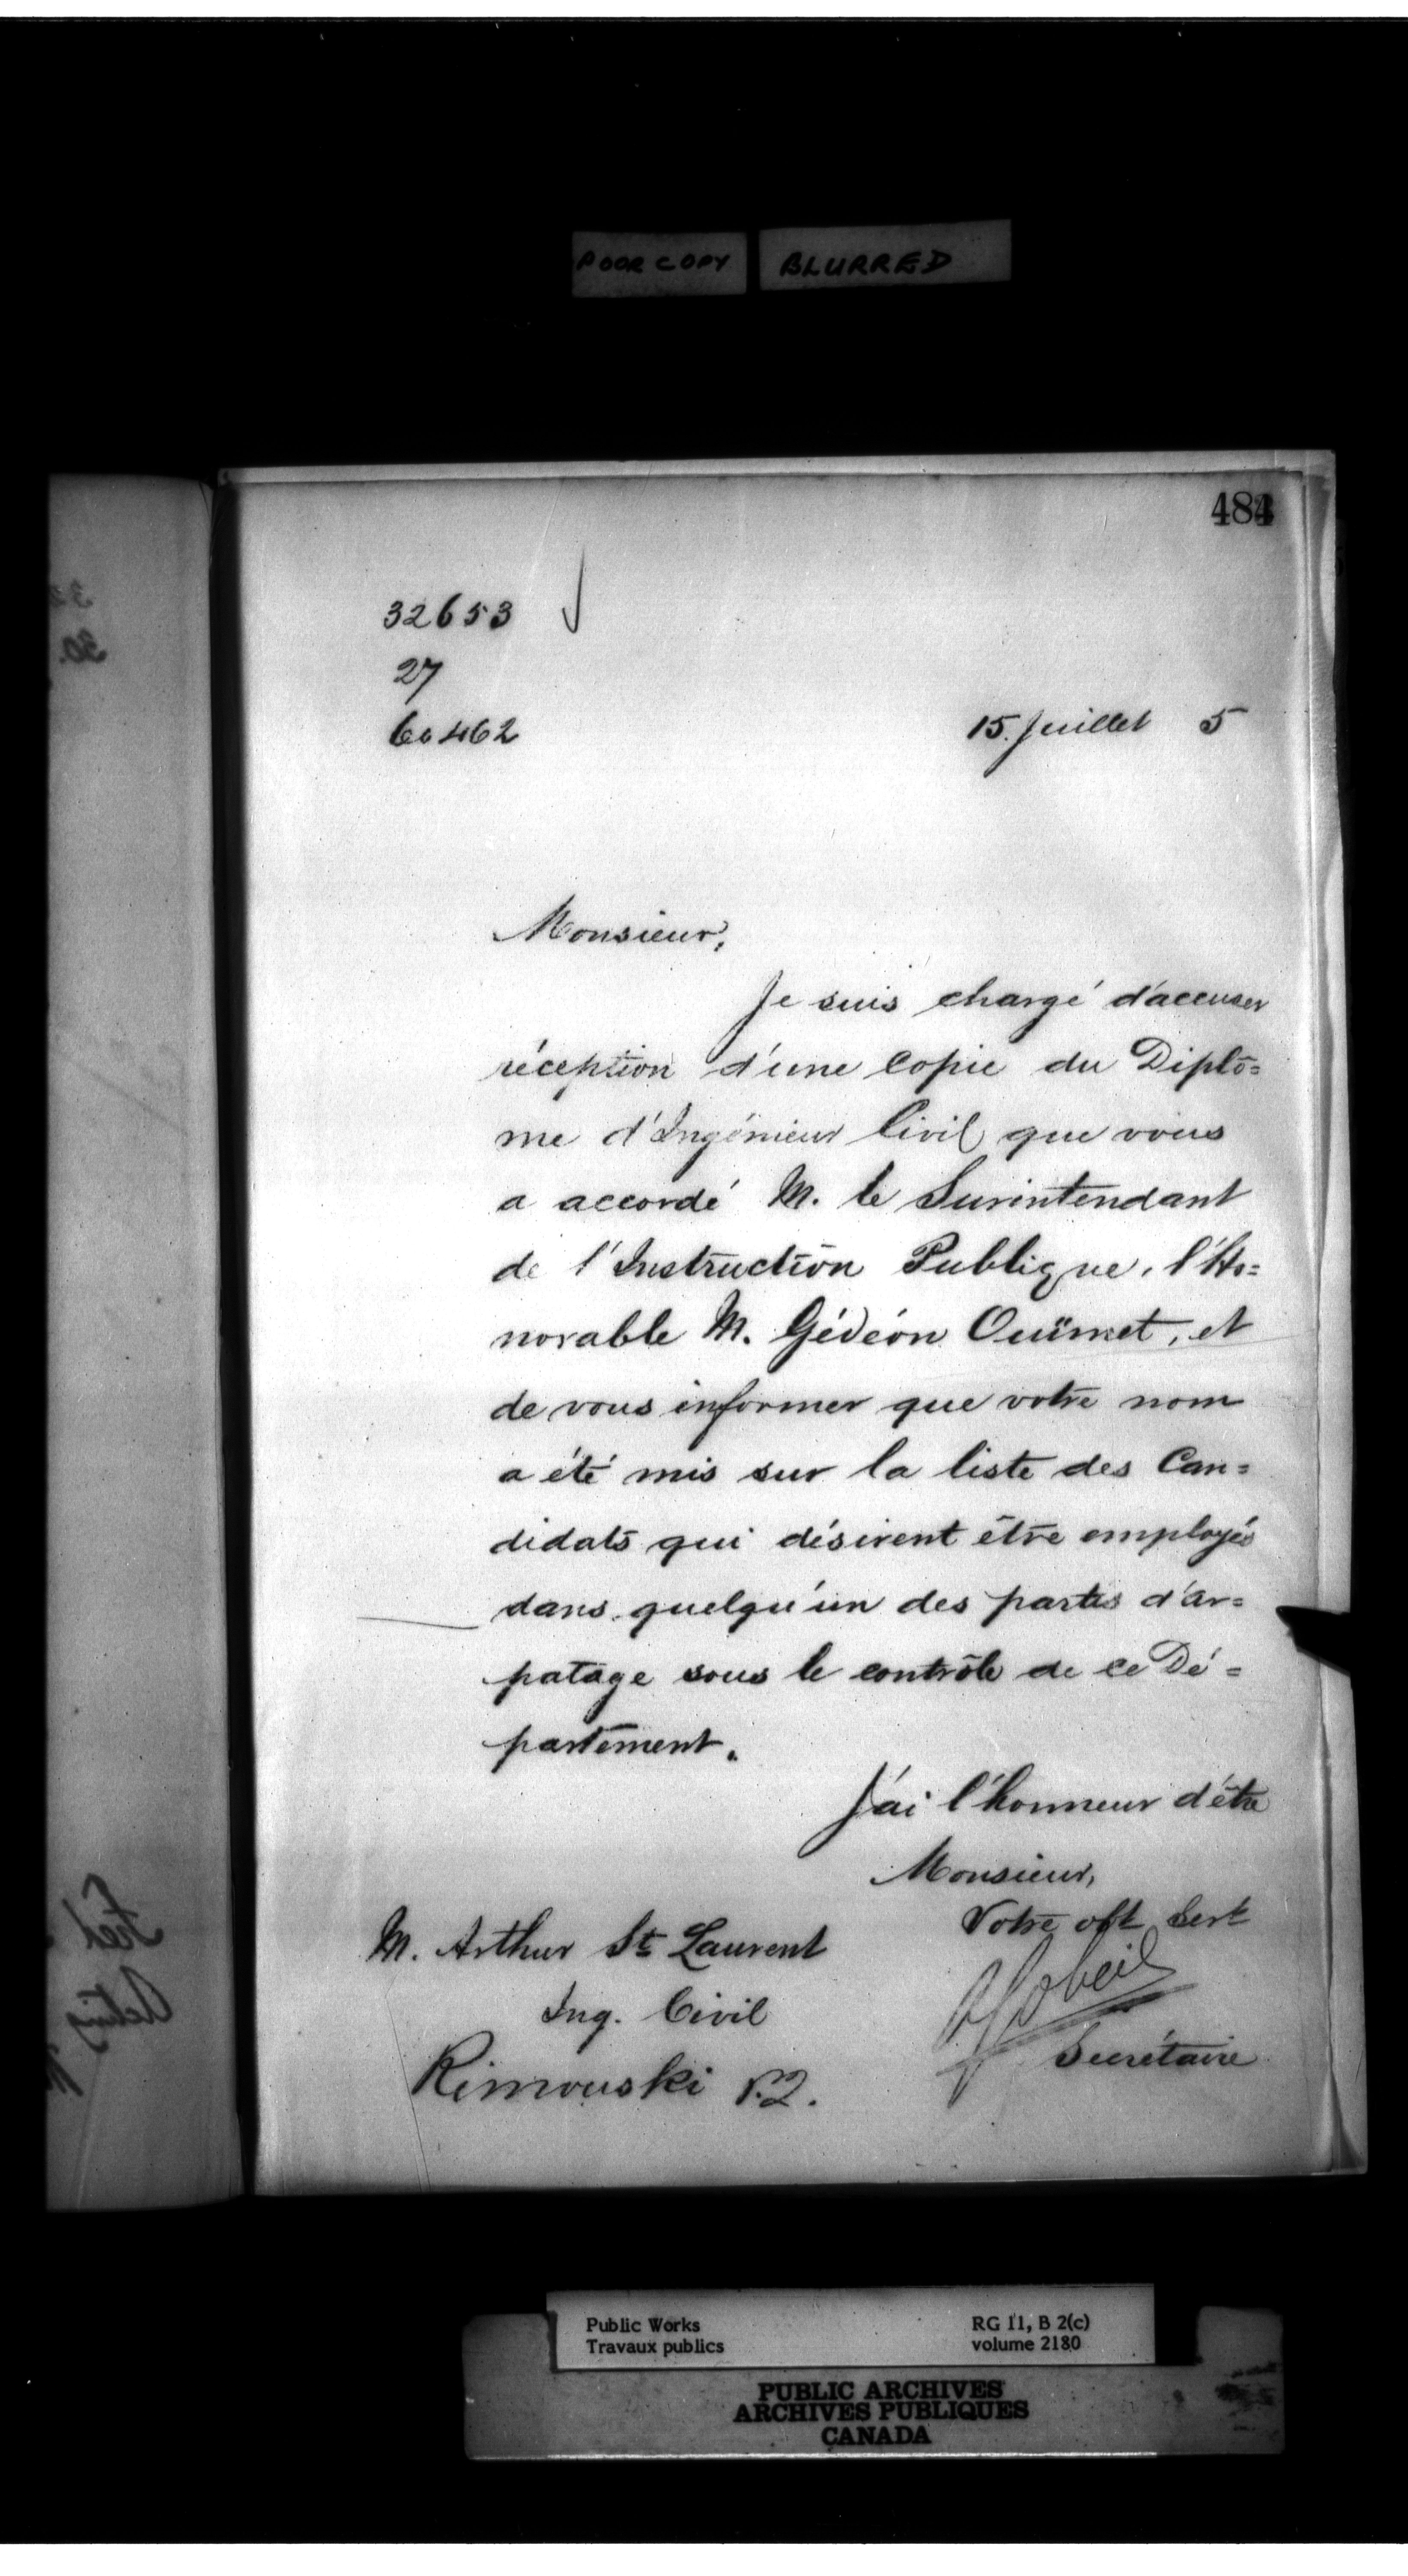 POOR COPY BLURRED
484
32653
27
60462
15. Juillet 5
Monsieur,
Je suis chargé d'accuser
réception d'une Copie du Diplô=
me d'Ingénieur Civil que vous
a accordé M. le Surintendant
de l'Instruction Publique, l'Ho=
norable M. Gédéon Ouïmet, et
de vous informer que votre nom
a été mis sur la liste des Can=
didats qui désirent être employés
dans quelqu'un des partis d'ar=
patage sous le contrôle de ce Dé=
partement.
J'ai l'honneur d'être
Monsieur,
Votre obt Sert
M. Arthur St Laurent
Gobeil
Ing. Civil
Secrétaire
Rimouski P.Q.
Public Works
Travaux publics
RG 11, B 2(c)
volume 2180
PUBLIC ARCHIVES
ARCHIVES PUBLIQUES
CANADA